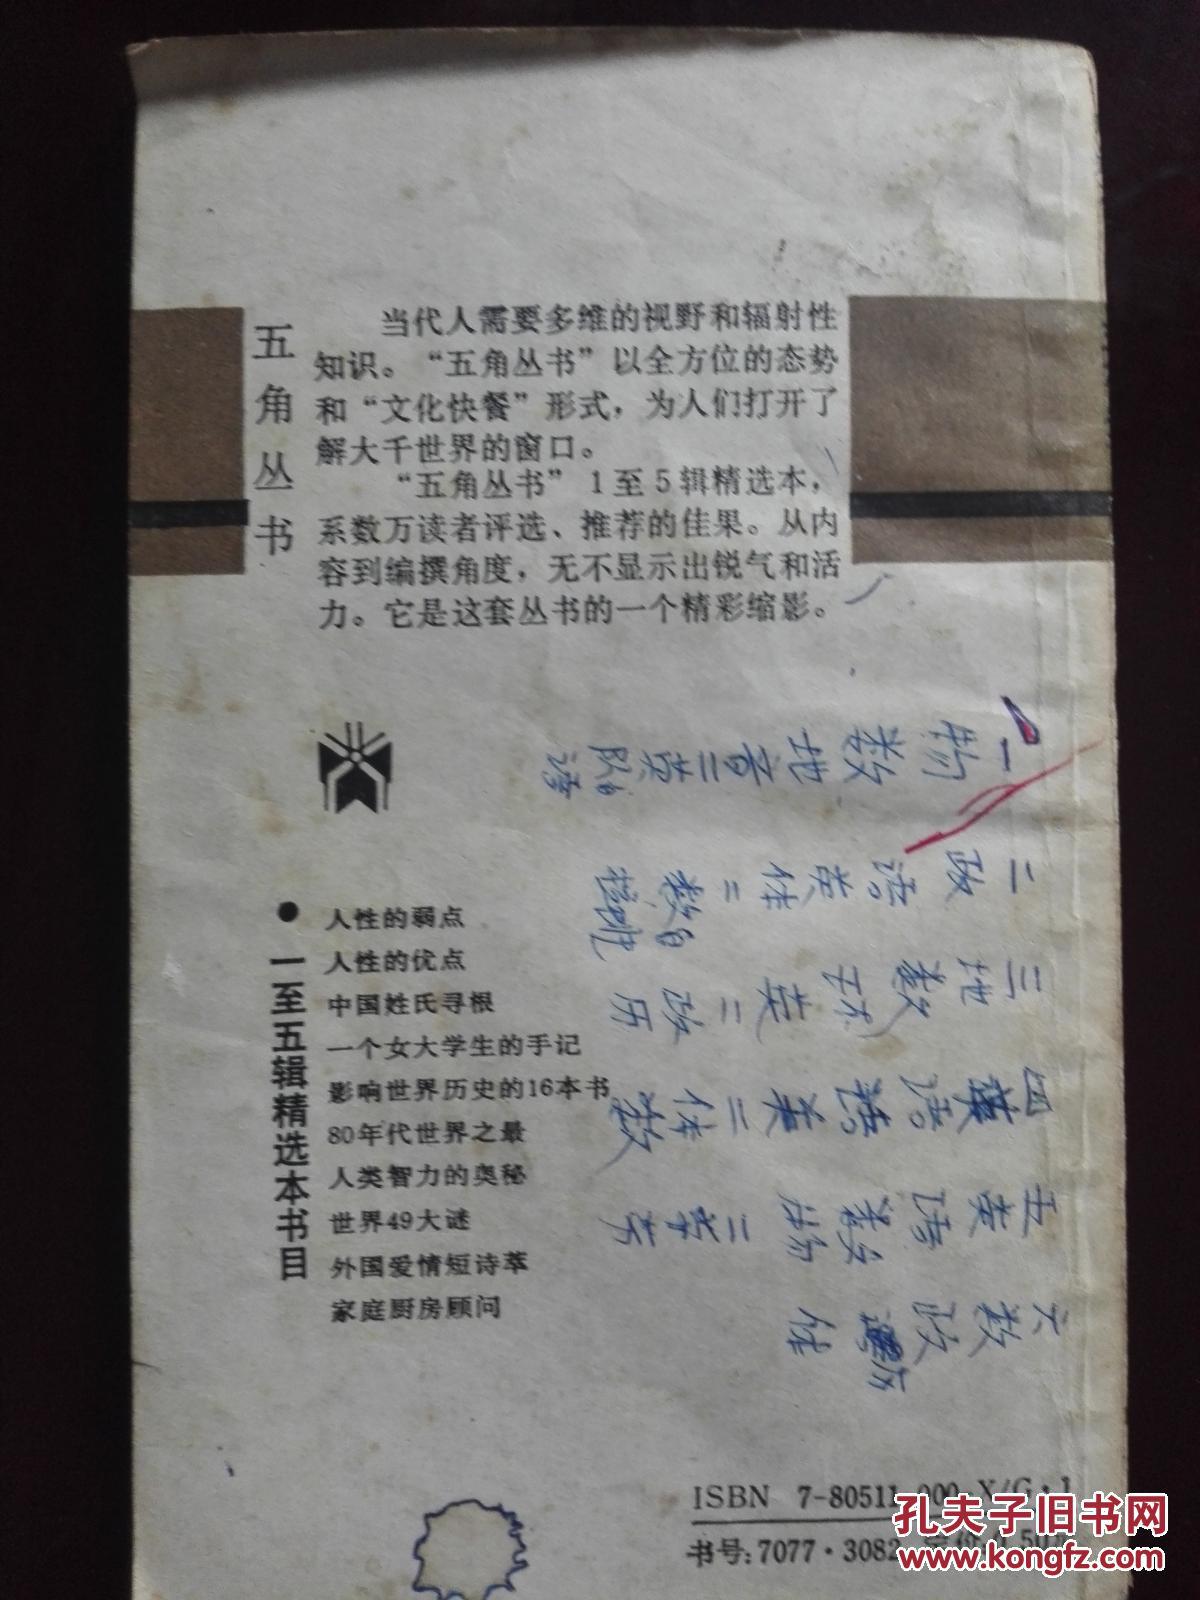 五角丛书
当代人需要多维的视野和辐射性
知识。“五角丛书”以全方位的态势
和“文化快餐”形式，为人们打开了
解大千世界的窗口。
“五角丛书”1至5辑精选本，
系数万读者评选、推荐的佳果。从内
容到编撰角度，无不显示出锐气和活
力。它是这套丛书的一个精彩缩影。
●一至五辑精选本书目
人性的弱点
人性的优点
中国姓氏寻根
一个女大学生的手记
影响世界历史的16本书
80年代世界之最
人类智力的奥秘
世界49大谜
外国爱情短诗萃
家庭厨房顾问
一物数地音二英
二政语英体二数自
三地数 英二政历
四 语 二体数
五英语数物二
六数政 历体
ISBN 7-80511-000-X/G·1
书号:7077·3082 定价:0.50元
孔夫子旧书网
www.kongfz.com